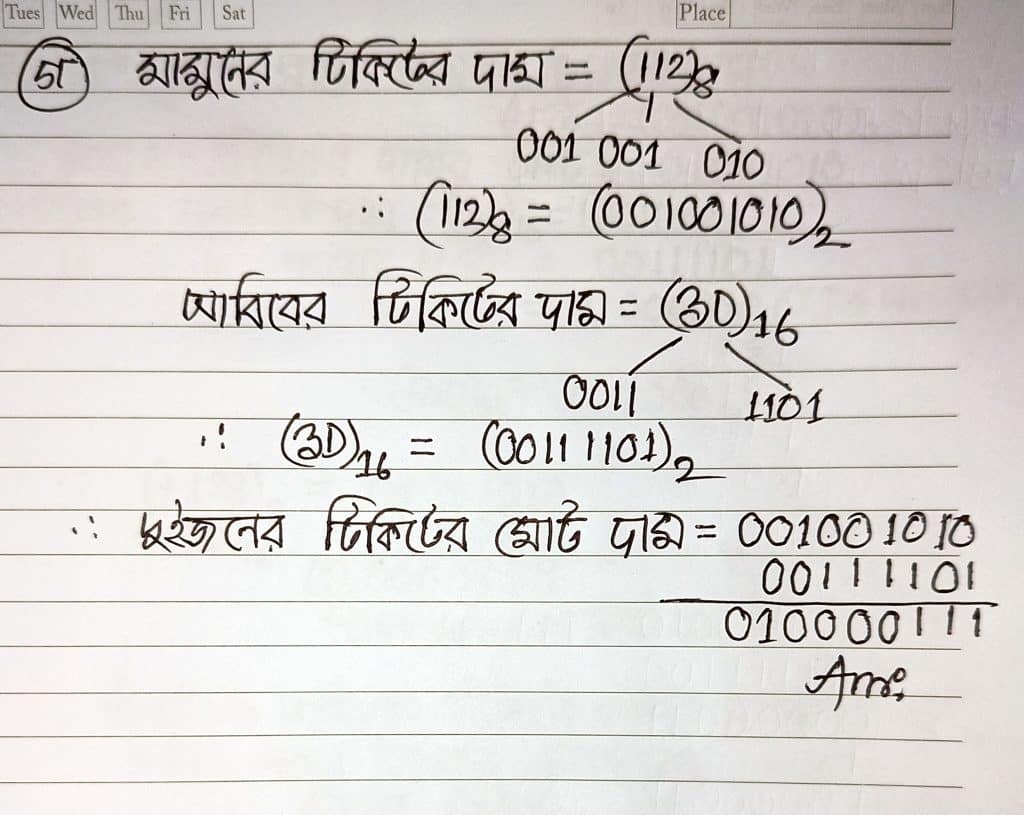 Tues Wed Thu Fri Sat Place
গ মামুনের টিকিটের দাম = (112)8
001 001 010
∴ (112)8 = (001001010)2
আবিবের টিকিটের দাম = (3D)16
0011 1101
∴ (3D)16 = (00111101)2
∴ দুইজনের টিকিটের মোট দাম = 001001010
00111101
010000111
Ans: